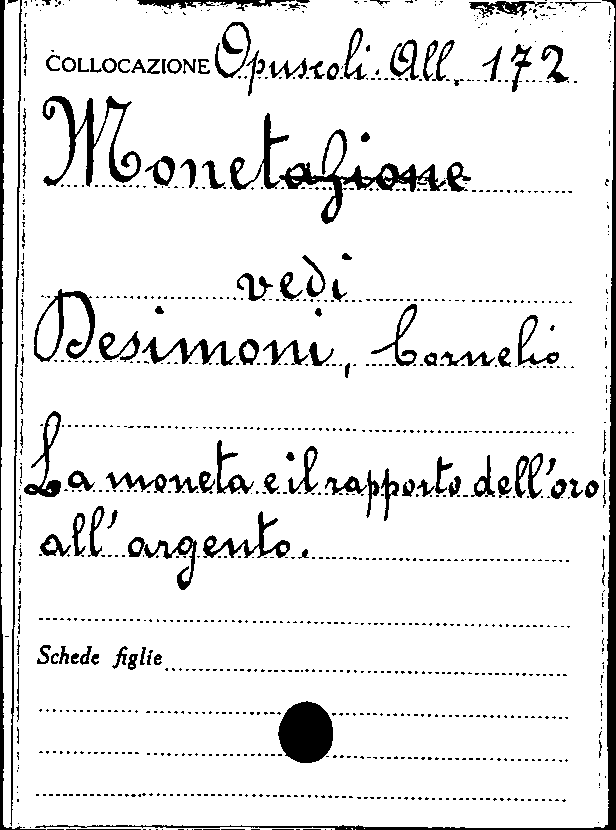 COLLOCAZIONE Opuscoli. All. 172
Monetazione
vedi
Desimoni, Cornelio
La moneta e il rapporto dell'oro
all'argento.
Schede figlie